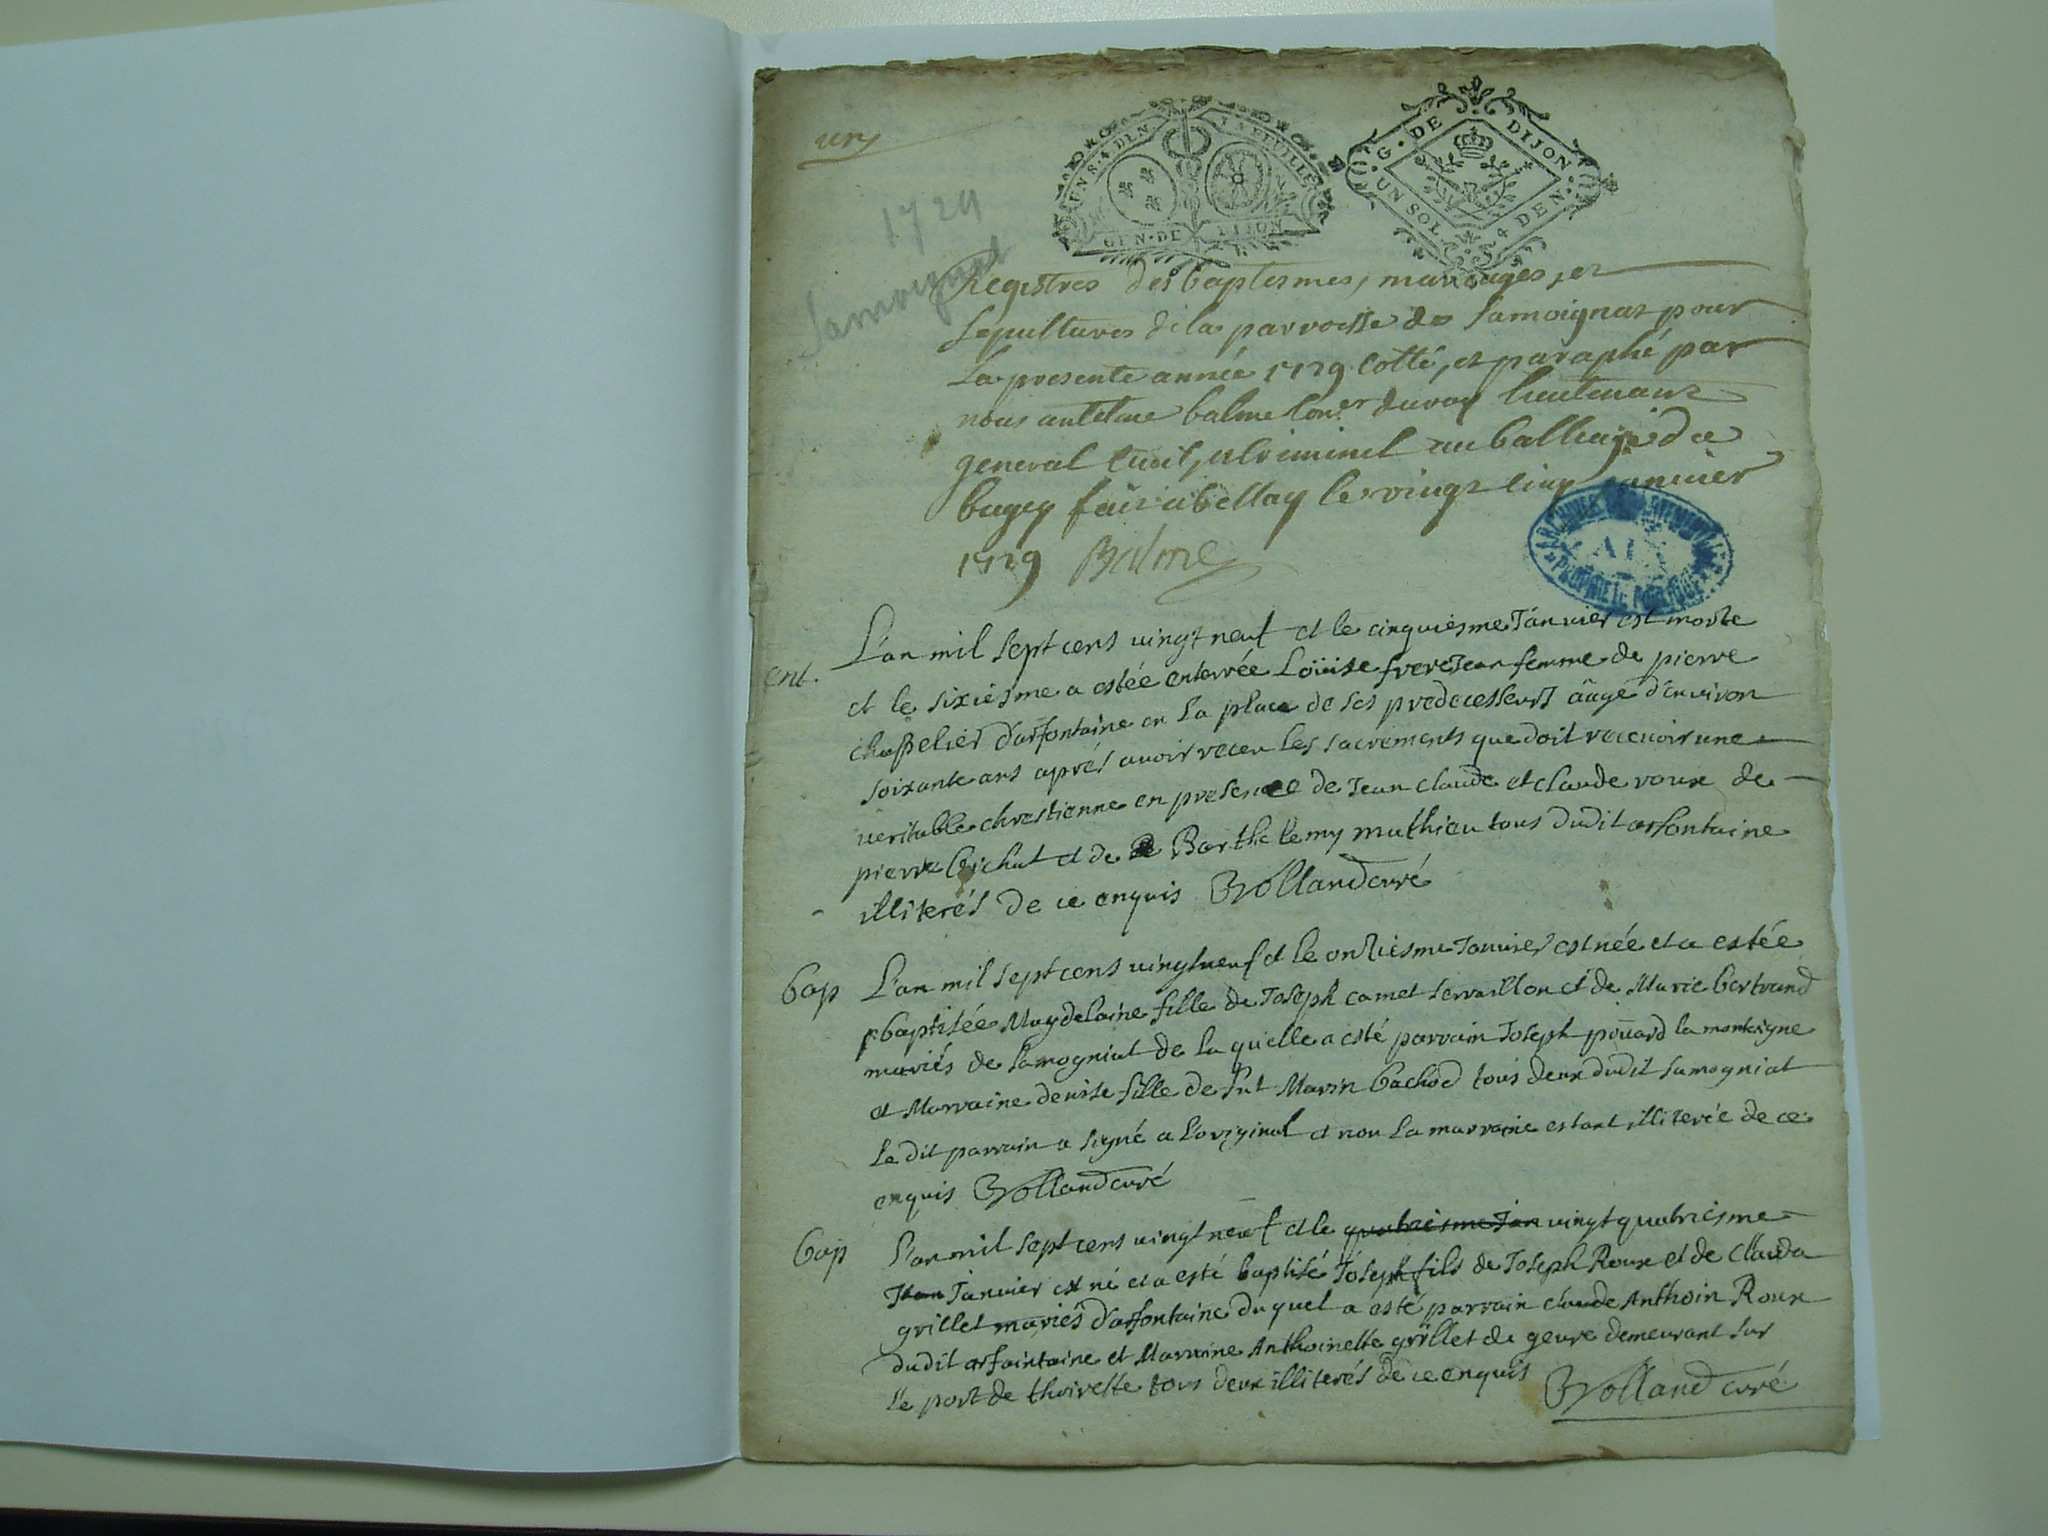 un
UN S. 4 D. LN. LA FEUILLE
GEN. DE DIJON
G. DE DIJON.
UN SOL 4 DEN.
1729
Samoignat
Registres des baptesmes, mariages, et
sepultures de la parroisse de Samoignat pour
la presente année 1729 cotté, et paraphé par
nous antelme balme Con.er du roy lieutenant
general civil, et criminel au balliage de
bugey fait a bellay le vingt cinq janvier
1729 Balme
ARCHIVES DEPARTEMENTALES
AIN
PROPRIETE PUBLIQUE
ent.
L'an mil sept cens vingt neuf et le cinquiesme Januier est morte
et le sixiesme a estée enterrée Loüise frereJean femme de pierre
chappelier d'arfontaine en la place de ses predecesseurs âage d'enuiron
soixante ans aprés auoir receu les sacrements que doit receuoir une
veritable chrestienne en presence de Jean claude et claude roux de
pierre et de Barthelemy mathieu tous dudit arfontaine
illiterés de ce enquis Rolland curé
bap
L'an mil sept cens vingt neuf et le onziesme Januier est née et a estée
baptisée Magdelaine fille de Joseph camet servaillon et de Marie bertrand
mariés de samogniat de la quelle a esté parrain Joseph pouard la montaigne
et Marraine denise fille de fut Marin bachod tous deux dudit samogniat
le dit parrain a signé a l'original et non la marraine estant illiterée de ce
enquis Rolland curé
bap
L'an mil sept cens vingt neuf et le quatriesme Jan vingt quatriesme
Jan Januier est né et a esté baptisé Joseph fils de Joseph Roux et de Clauda
grillet mariés d'arfontaine du quel a esté parrain claude Anthoin Roux
dudit arfaintaine et Marraine Anthoinette grillet de geure demeurant sur
le port de thoirette tous deux illiterés de ce enquis Rolland curé